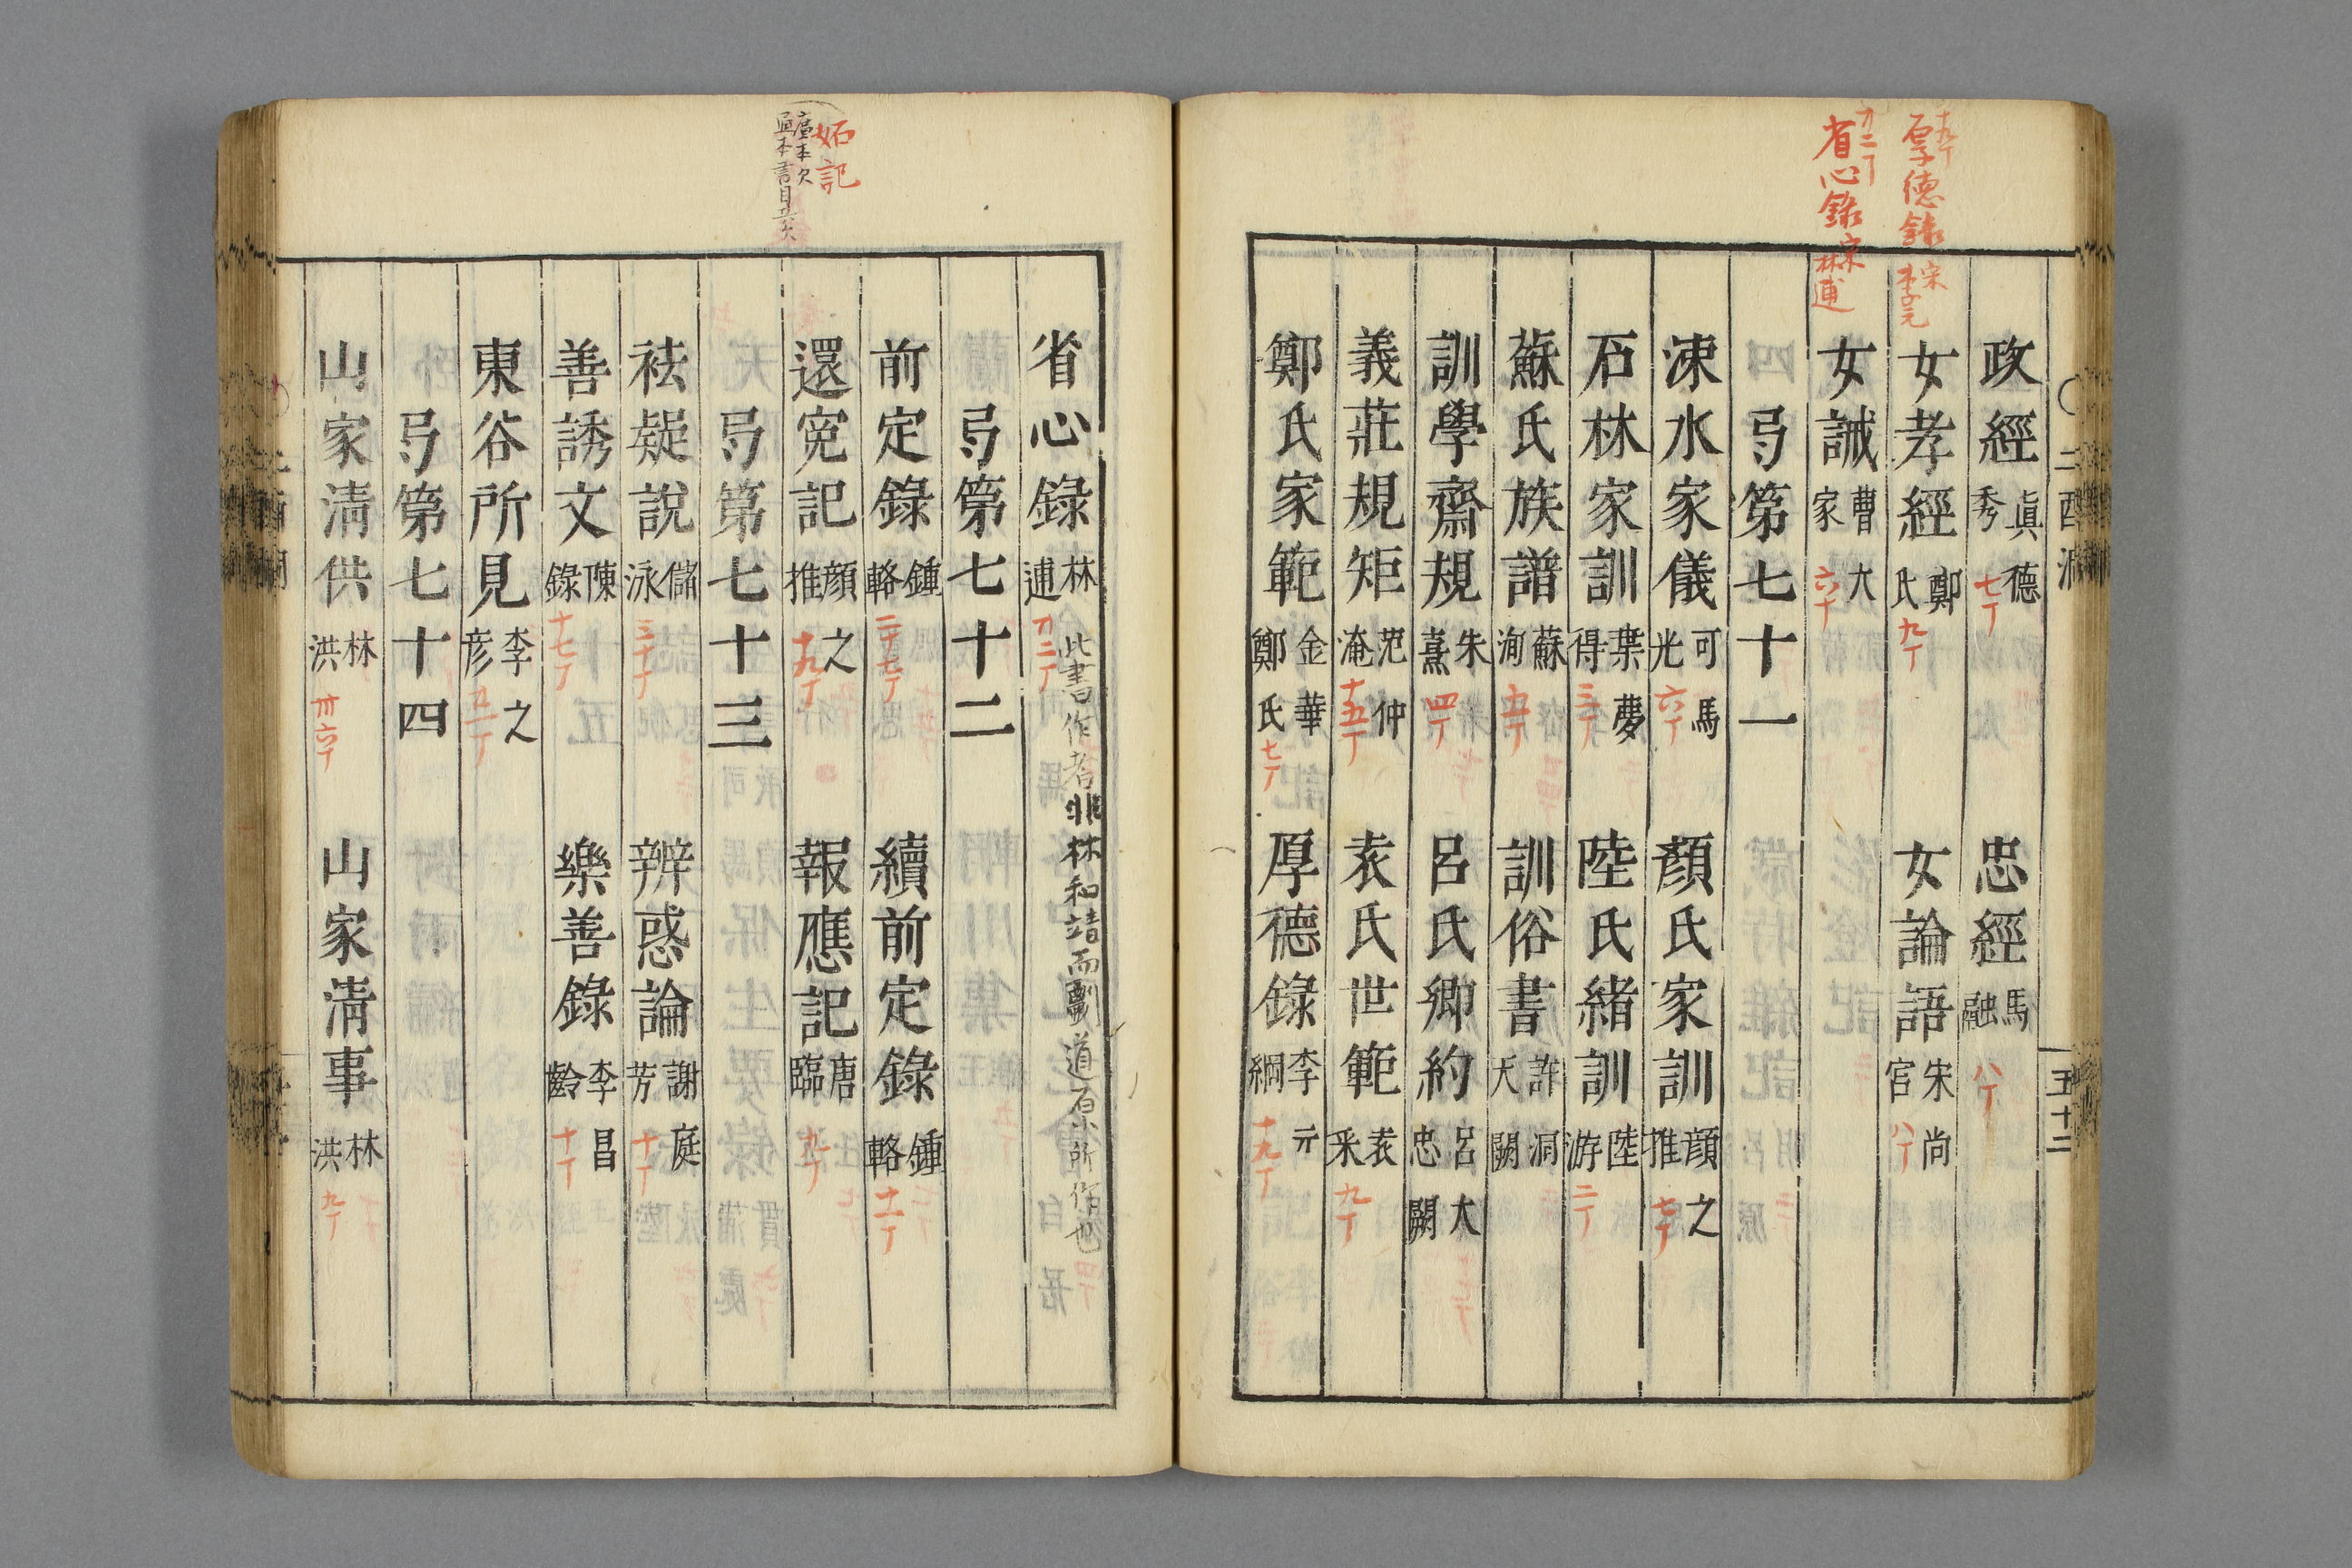 十九丁
厚德錄 宋李元
廿二丁
省心錄 宋林逋
五十二
政經 眞德秀 七丁 忠經 馬融 八丁
女孝經 鄭氏 九丁 女論語 宋尚宮 八丁
女誡 曹大家 六丁
弓第七十一
涑水家儀 司馬光 六丁 顏氏家訓 顏之推 七丁
石林家訓 葉夢得 三丁 陸氏緒訓 陸游 二丁
蘇氏族譜 蘇洵 五丁 訓俗書 許洞天 闕
訓學齋規 朱熹 四丁 呂氏鄉約 呂大忠 闕
義莊規矩 范仲淹 十五丁 袁氏世範 袁采 九丁
鄭氏家範 金華鄭氏 七丁 厚德錄 李元綱 十九丁
妬記
省心錄 林逋 廿二丁 此書作者非林和靖而劉道原所作也
弓第七十二
前定錄 鍾輅 二十七丁 續前定錄 鍾輅 十一丁
還寃記 顏之推 十九丁 報應記 唐臨 九丁
弓第七十三
袪疑說 儲泳 三十丁 辨惑論 謝芳庭 十丁
善誘文 陳錄 十七丁 樂善錄 李昌齡 十丁
東谷所見 李之彥 五一丁
弓第七十四
山家清供 林洪 卅六丁 山家清事 林洪 九丁